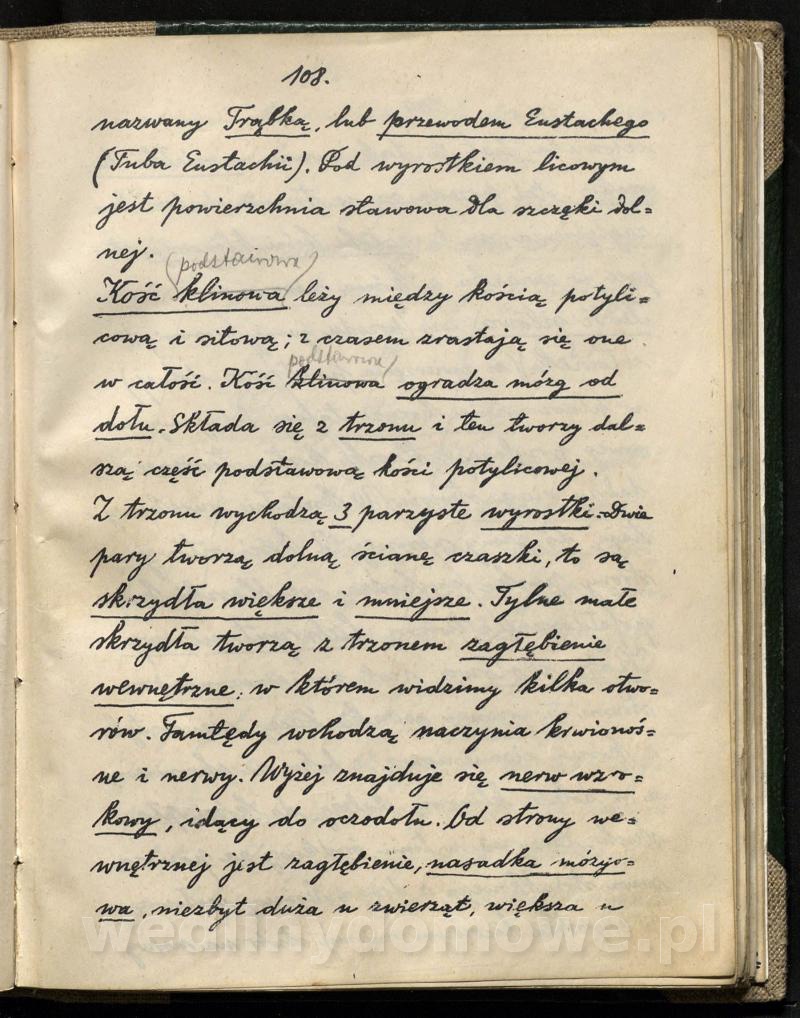 108.
nazwany Trąbką, lub przewodem Eustachego
(Tuba Eustachii). Pod wyrostkiem licowym
jest powierzchnia stawowa dla szczęki dol=
nej.
(podstawowa)
Kość klinowa leży między kością potyli=
cową i sitową; z czasem zrastają się one
podstawowa)
w całość. Kość klinowa ogradza mózg od
dołu. Składa się z trzonu i ten tworzy dal=
szą część podstawową kości potylicowej.
Z trzonu wychodzą 3 parzyste wyrostki. Dwie
pary tworzą dolną ścianę czaszki, to są
skrzydła większe i mniejsze. Tylne małe
skrzydła tworzą z trzonem zagłębienie
wewnętrzne, w którem widzimy kilka otwo=
rów. Tamtędy wchodzą naczynia krwionoś=
ne i nerwy. Wyżej znajduje się nerw wzro=
kowy, idący do oczodołu. Od strony we=
wnętrznej jest zagłębienie, nasadka mózgo=
wa, niezbyt duża u zwierząt, większa u
wedlinydomowe.pl